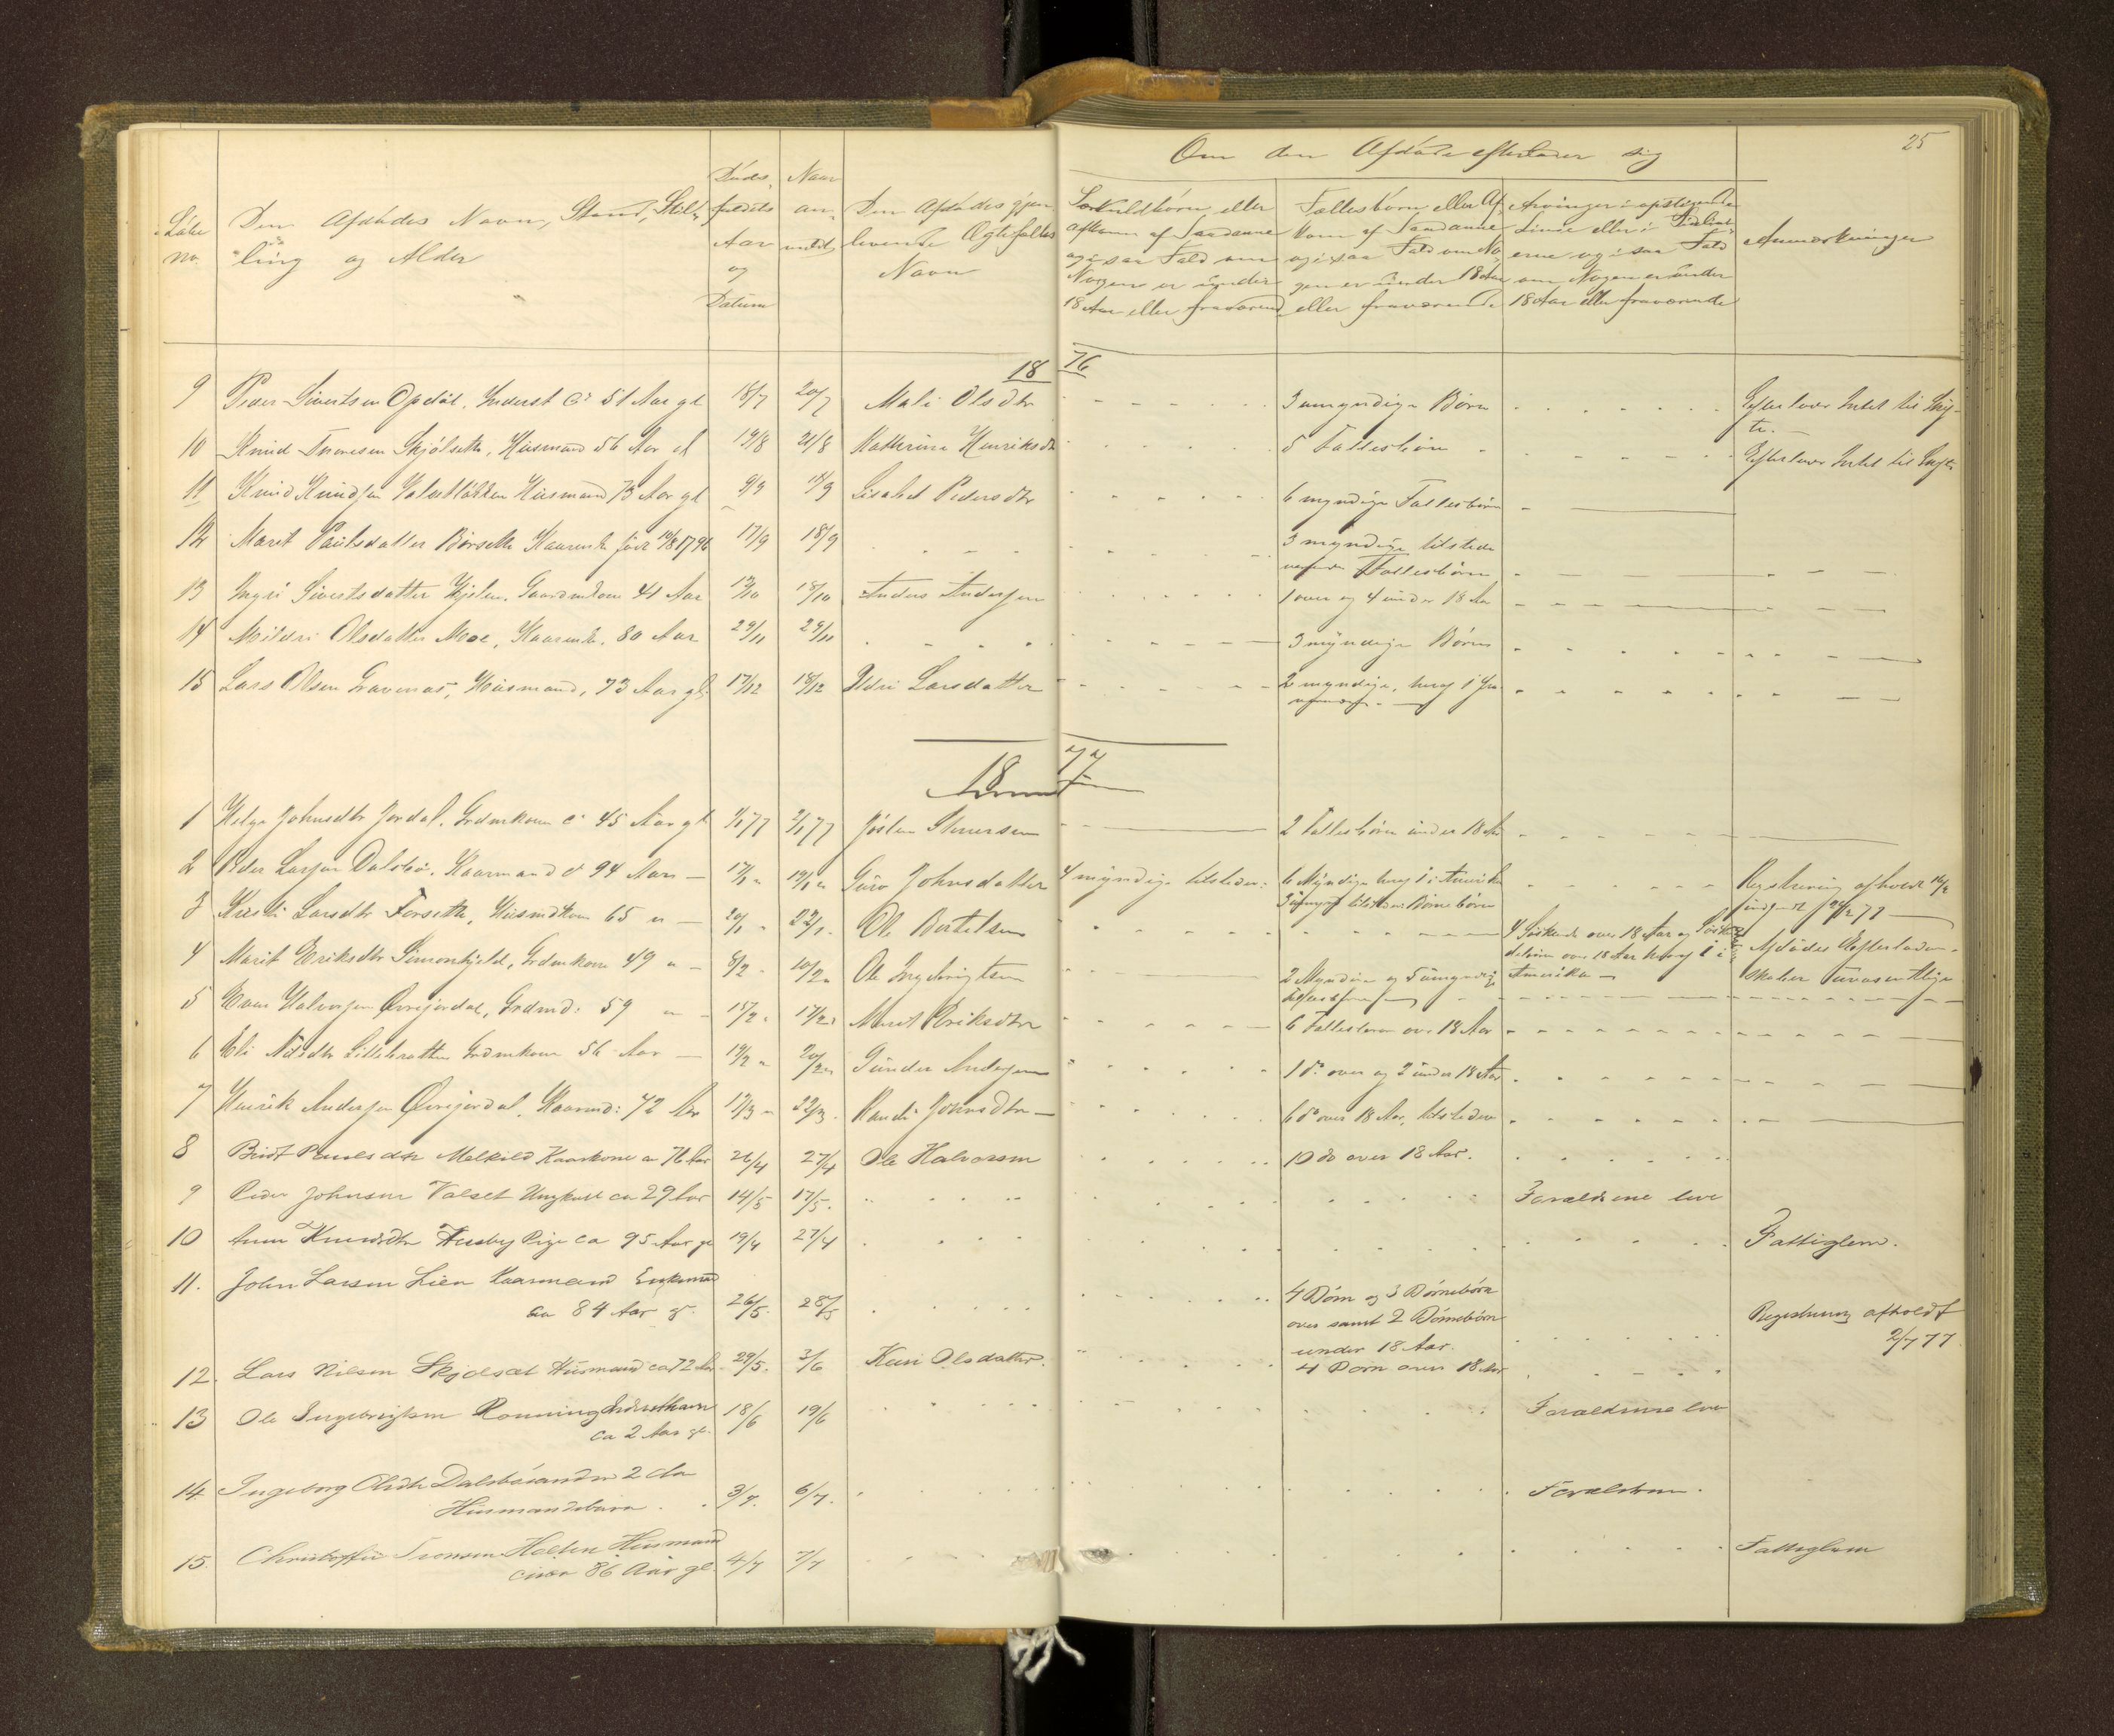 25
Om den Afdøde efterlader sig
Løbe no.
Den Afdødes Navn, Stand, Stilling og Alder
Dødsfaldets Aar og Datum
Naar anmeldt
Den Afdødes gjenlevende Ægtefælles Navn
Særkuldbørn eller Afkom af Saadanne og i saa Fald om Nogen er under 18 Aar eller fraværende
Fællesbørn eller Afkom af Saadanne og i saa Fald om Nogen er under 18 Aar eller fraværende
Arvinger i opstigende Linie eller i Sidelinierne og i saa Fald om Nogen er under 18 Aar eller fraværende
Anmærkninger
1876
9 Peder Sivertsen Opdøl, Inderst ca 51 Aar gl 18/7 20/7 Mali Olsdtr 3 umyndige Børn Efterlever Intet til Skifte.
10 Knud Thoresen Skjølseth, Husmand 56 Aar gl 19/8 21/8 Kathrine Henriksdtr 5 Fællesbørn Efterlever Intet til Skifte
11 Knud Knudsen Husmand 73 Aar gl 9/9 Lisabet Pedersdtr 6 myndige Fællesbørn
12 Marit Paulsdatter Børseth Kaarenke født 1796 17/9 18/9 3 myndige tilstedeværende Fællesbørn
13 Ingri Sivertsdatter Gaardmkone 41 Aar 18/10 Anders Andersen 1 over og 4 under 18 Aar
14 Mildri Olsdatter Moe, Kaarenke, 80 Aar 24/11 29/11 3 myndige Børn
15 Lars Olsen Gravenæs, Husmand, 73 Aar gl. 17/12 18/12 Ildri Larsdatter 2 myndige, hvoraf 1
1877
1 Helga Johnsdtr Jordal, Grdmkone ca 45 Aar gl 77 77 Jøsten 2 Fællesbørn under 18 Aar
2 Peder Larsen Dalsbø, Kaarmand ca 94 Aar Guro Johnsdatter 4 myndige tilstede: 6 Myndige hvoraf 1 i Amerika 3 tilstede Børnebørn Registrering afholdt 77
3 Kirsti Larsdtr Forseth, Husmdkone 65 20/1 22/1 Ole Bertelsen 4 Søskende over 18 Aar og over 18 Aar hvoraf 1 i Amerika Afdødes Efterladenskaber uvæsentlige
4 Marit Eriksdtr Simonhjeld, Grdmkone 49 8/2 10/2 Ole Ingebrigtsen 2 Myndige og 5 umyndige
5 Even Halvorsen Øvrejordal, Grdmd: 59 15/2 17/2 Marit Eriksdtr 6 Fællesbørn over 18 Aar
6 Eli Nilsdtr Grdmkone 56 Aar 19/2 20/2 Gunder Andersen 1 do over og 2 under 18 Aar
7 Henrik Andersen Øvrejordal, Kaarmd: 72 Aar 19/3 22/3 Randi Johnsdtr 6 do over 18 Aar, tilstede
8 Beret Paulsdtr Melkild Kaarkone ca 76 Aar 26/4 27/4 Ole Halvorsen 10 do over 18 Aar.
9 Peder Johnsen Valset Ungkarl ca 29 Aar 14/5 17/5. Forældrene leve
10 Anne Knudsdtr Husby Pige ca 95 Aar gl 19/4 27/4 Fattiglem.
11. John Larsen Lien Kaarmand Enkemand ca 84 Aar gl. 26/5. 28/5 4 Børn og 3 Børnebørn over samt 2 Børnebørn under 18 Aar. Registrering afholdt 2/7 77
12. Lars Nilsen Skjølsæt Husmand ca 72 Aar 29/5. 3/6 Kari Olsdatter. 4 Børn over 18 Aar
13 Ole Ingebrigtsen Rønning Inderstbarn ca 2 Aar gl. 18/6 19/6 Forældrene leve
14. Ingeborg Olsdtr 2 Aar Husmandsbarn 3/7. 6/7. Forældrene.
15. Christoffer Tronsen Holten Husmand circa 86 Aar gl. 4/7 7/7 Fattiglem